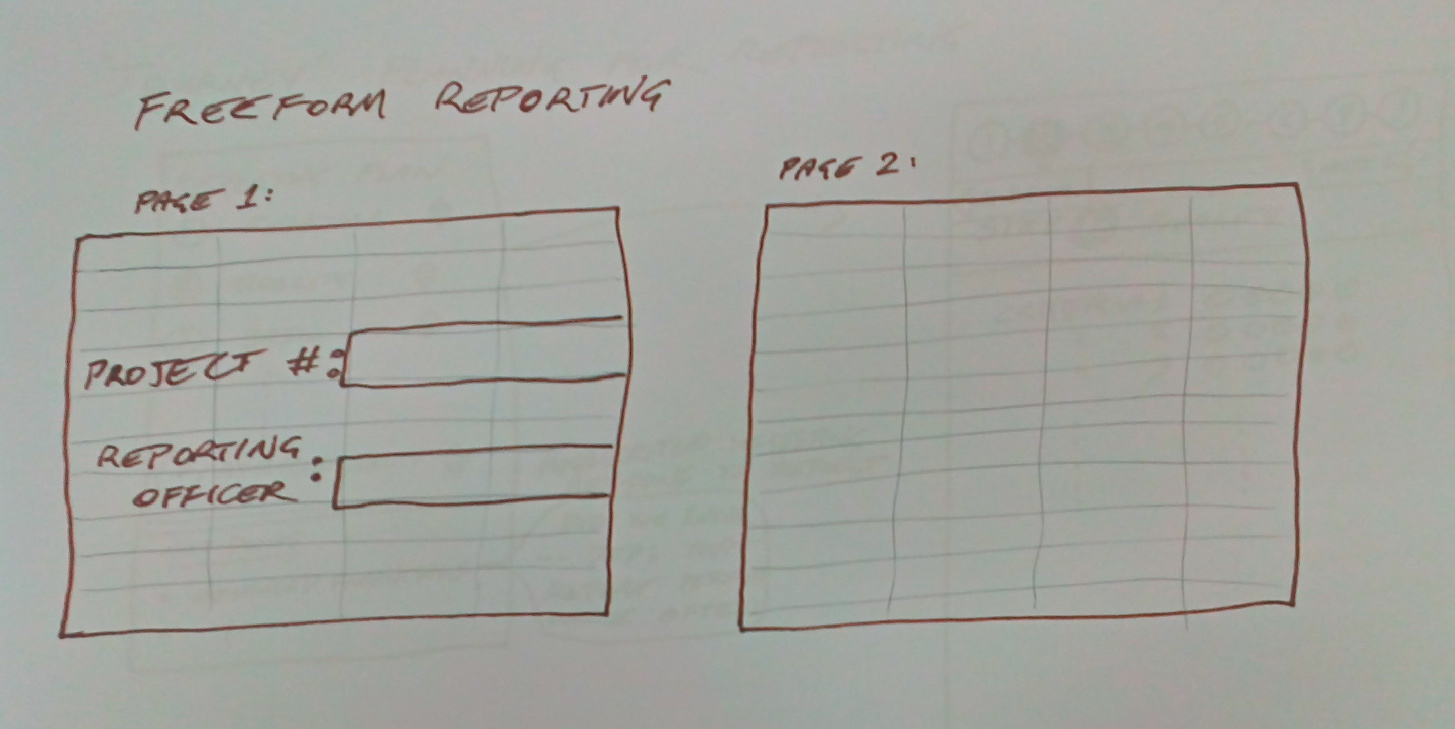 FREEFORM REPORTING
PAGE 1:
PROJECT #:
REPORTING :
OFFICER
PAGE 2: